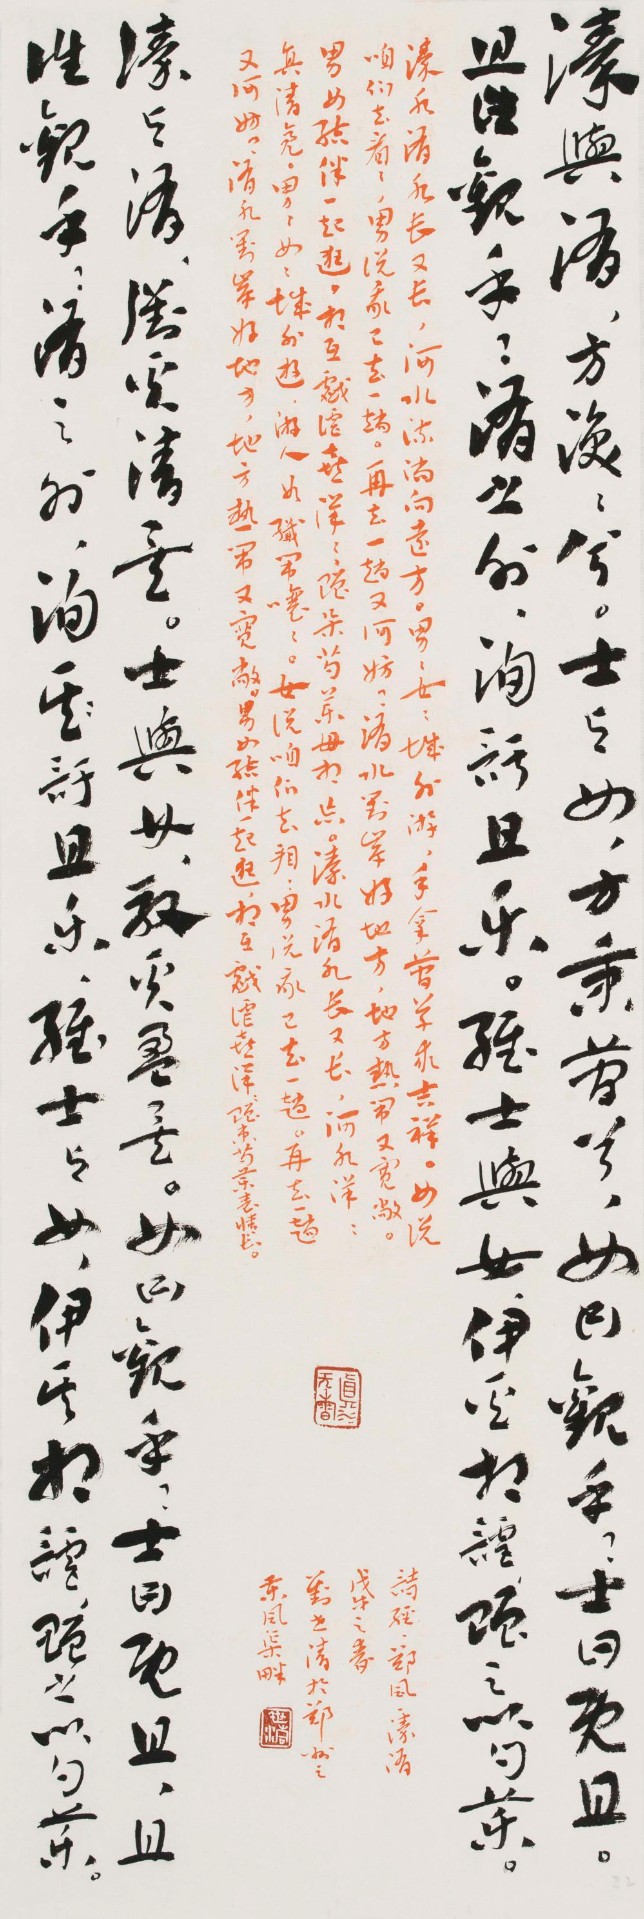 溱與洧，方渙〻兮。士与女，方秉蕑兮，女曰觀乎〻士曰既且。
且往觀乎〻洧之外，洵訏且乐。維士與女伊其相謔，贈之以勺藥。
溱水洧水長又長，河水流淌向遠方。男〻女〻城外游，手拿蕑草求吉祥。女说
咱们去看〻，男说我已去一趟。再去一趟又何妨〻洧水對岸好地方，地方熱鬧又寬敞。
男女結伴一起逛，相互戲谑喜洋〻，贈朵芍藥毋相忘。溱水洧水長又長，河水洋〻
真清亮。男〻女〻城外遊，游人如織鬧嚷〻。女说咱们去看，男说我已去一趟。再去一趟
又何妨〻洧水對岸好地方，地方熱鬧又寬敞。男女結伴一起逛，相互戲谑喜洋〻，贈支芍藥表情长。
溱与洧，瀏其清矣。士與女，殷其盈矣。女曰觀乎〻士曰既且，且
往觀乎〻洧之外，洵其訏且乐，維士与女，伊其相謔，贈之以勺藥。
詩經·鄭風·溱洧
戊戌之春
對之清於鄭州之
東風渠畔